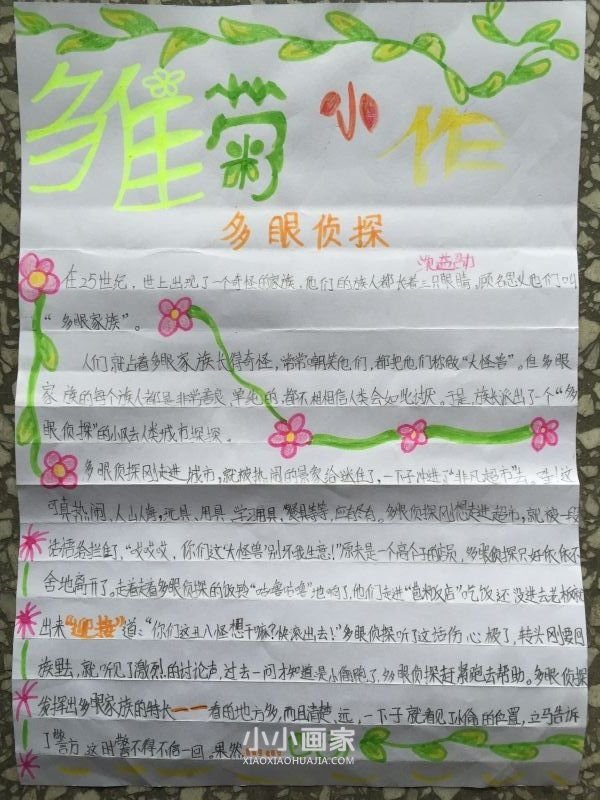 雏菊小作
多眼侦探
在25世纪，世上出现了一个奇怪的家族，他们的族人都长着三只眼睛，顾名思义他们叫
“多眼家族”。
人们就占着多眼家族长得奇怪，常常嘲笑他们，都把他们称做“大怪兽”。但多眼
家族的每个族人都是非常善良、单纯的，都不想相信人类会如此讨厌。于是，族长派出了一个“多
眼侦探”的小队去人类城市探探。
多眼侦探刚走进城市，就被热闹的景象给迷住了，一下子冲进了“非凡超市”去。哇！这
可真热闹，人山人海，玩具、用具、学习用具、餐具等等，应有尽有。多眼侦探刚想走进超市，就被一段
话语给拦住了，“哎哎哎，你们这“大怪兽”别坏我生意！”原来是一个高个子的店员，多眼侦探只好依依不
舍地离开了。走着走着多眼侦探的饭铃“咕噜咕噜”地响了，他们走进“饭店”吃饭，还没进去老板就
出来“迎接”道：“你们这丑八怪想干嘛？快滚出去！”多眼侦探听了这话伤心极了，转头刚要回
族里去，就听见了激烈的讨论声，过去一问才知道是小偷跑了，多眼侦探赶紧跑去帮助。多眼侦探
发挥出多眼家族的特长——看的地方多，而且清楚、远，一下子就看见了小偷的位置，立马告诉
了警方，这时警不得不信一回。果然
小小画家
XIAOXIAOHUAJIA.COM